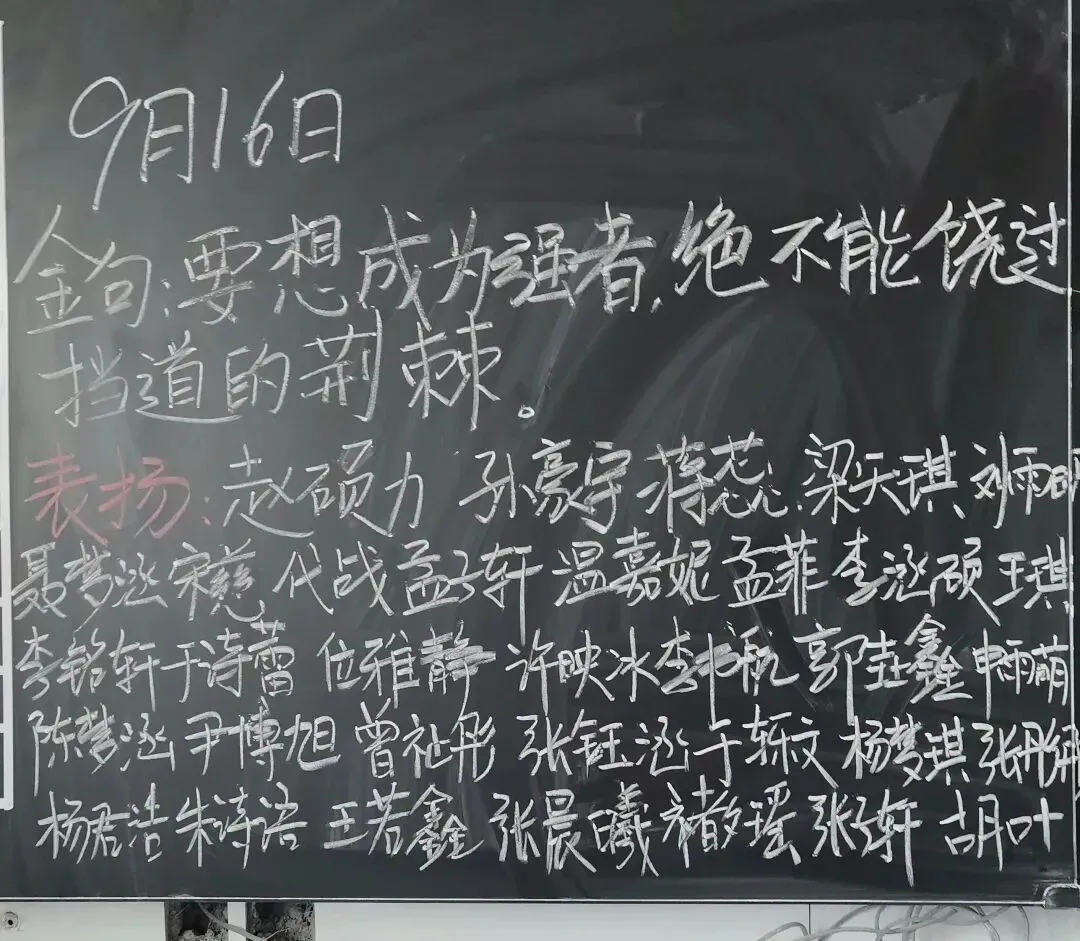 9月16日
金句:要想成为强者,绝不能饶过
挡道的荆棘。
表扬:赵硕力 孙豪宇 蒋蕊 梁天琪 刘雨明
聂梦涵 宋慈 代战 孟子轩 温嘉妮 孟菲 李涵硕 王琪
李铭轩 于诗蕾 位雅静 许映冰 李书航 郭圭鑫 申雨萌
陈梦涵 尹博旭 曾祉彤 张钰涵 于轹文 杨梦琪 张彤
杨君浩 朱诗语 王若鑫 张晨曦 褚敦瑶 张轩 胡叶